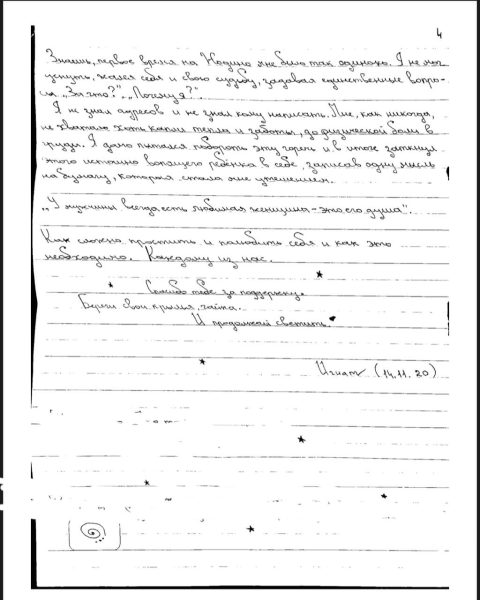 4
Знаешь, первое время на Нодино мне было так одиноко. Я не мог
уснуть, жалел себя и свою судьбу, задавая единственные вопро-
сы „За что?", „Почему я?".
Я не знал адресов и не знал кому написать. Мне, как никогда,
не хватало хоть капли тепла и заботы, до физической боли в
груди. Я долго пытался побороть эту горечь и в итоге заткнул
этого истошно вопящего ребенка в себе, записав одну мысль
на бумагу, которая стала мне утешением.
„У мужчины всегда есть любимая женщина - это его душа".
Как сложно простить и полюбить себя и как это
необходимо. Каждому из нас.
Спасибо тебе за поддержку.
Береги свои крылья, чайка.
И продолжай светить
Игнат (14.11.20)